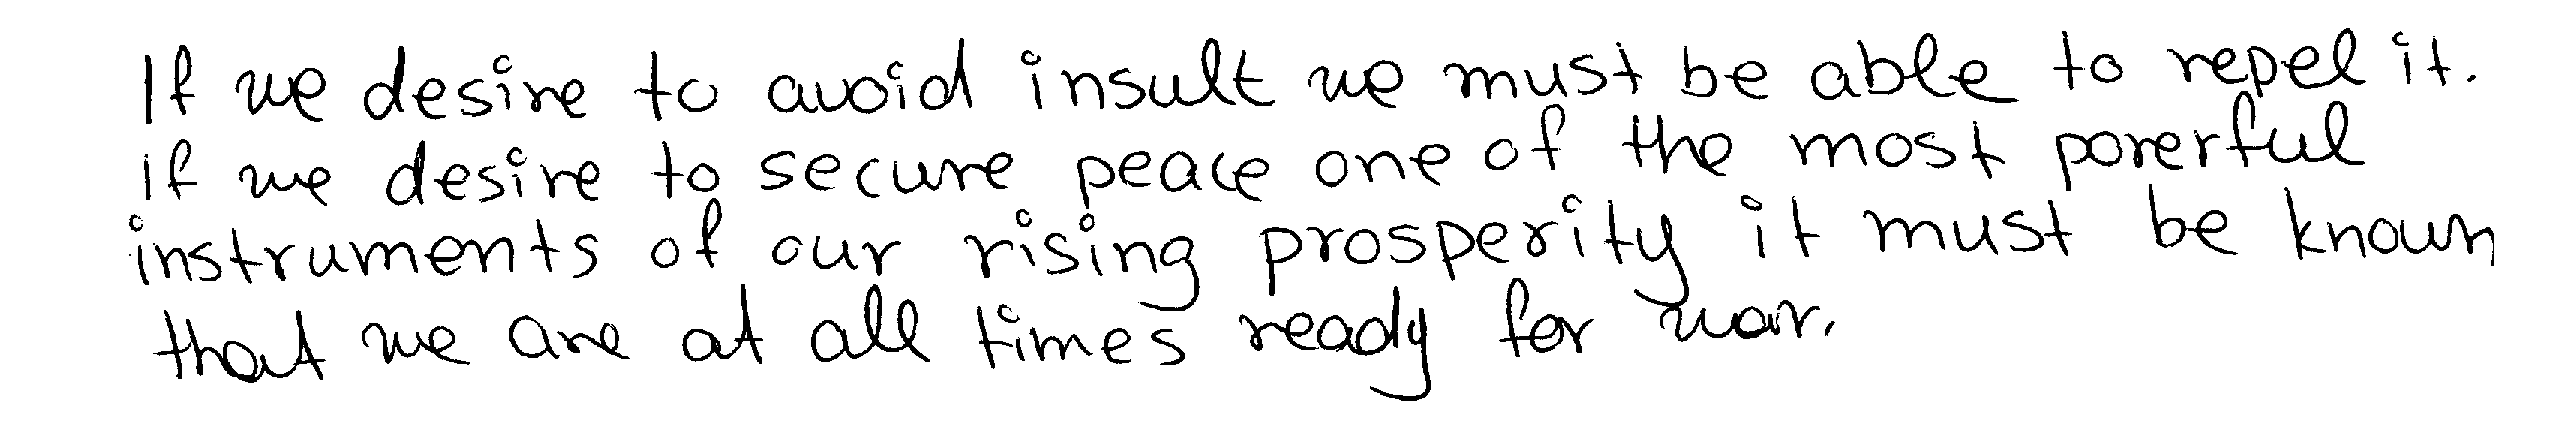 If we desire to avoid insult we must be able to repel it.
if we desire to secure peace one of the most porerful
instruments of our rising prosperity it must be known
that we are at all times ready for war.